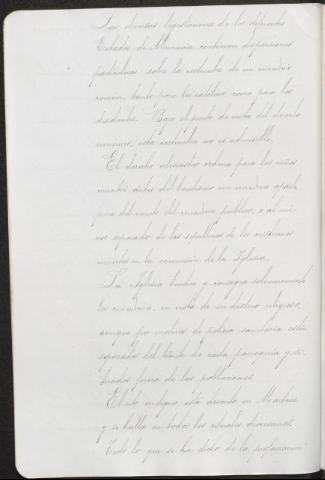 Las diversas legislaciones de los diferentes
Estados de Alemania contienen disposiciones
particulares sobre la costumbre de un cementerio
común, tanto para los católicos como para los
disidentes. Bajo el punto de vista del derecho
canónico, esta costumbre no es admisible.
El derecho eclesiástico ordena para los niños
muertos antes del bautismo un cementerio aparte,
fuera del del cementerio público, o al me-
nos separado de las sepulturas de los cristianos
muertos en la comunión de la Iglesia.
La Iglesia bendice y consagra solemnemente
los cementerios, en vista de su destino religioso,
aunque por motivos de policía sanitaria estén
separados del de cada parroquia y si-
tuados fuera de las poblaciones.
El rito antiguo está descrito en
y se halla en todos los rituales diocesanos.
Todo lo que se ha dicho de la profanación